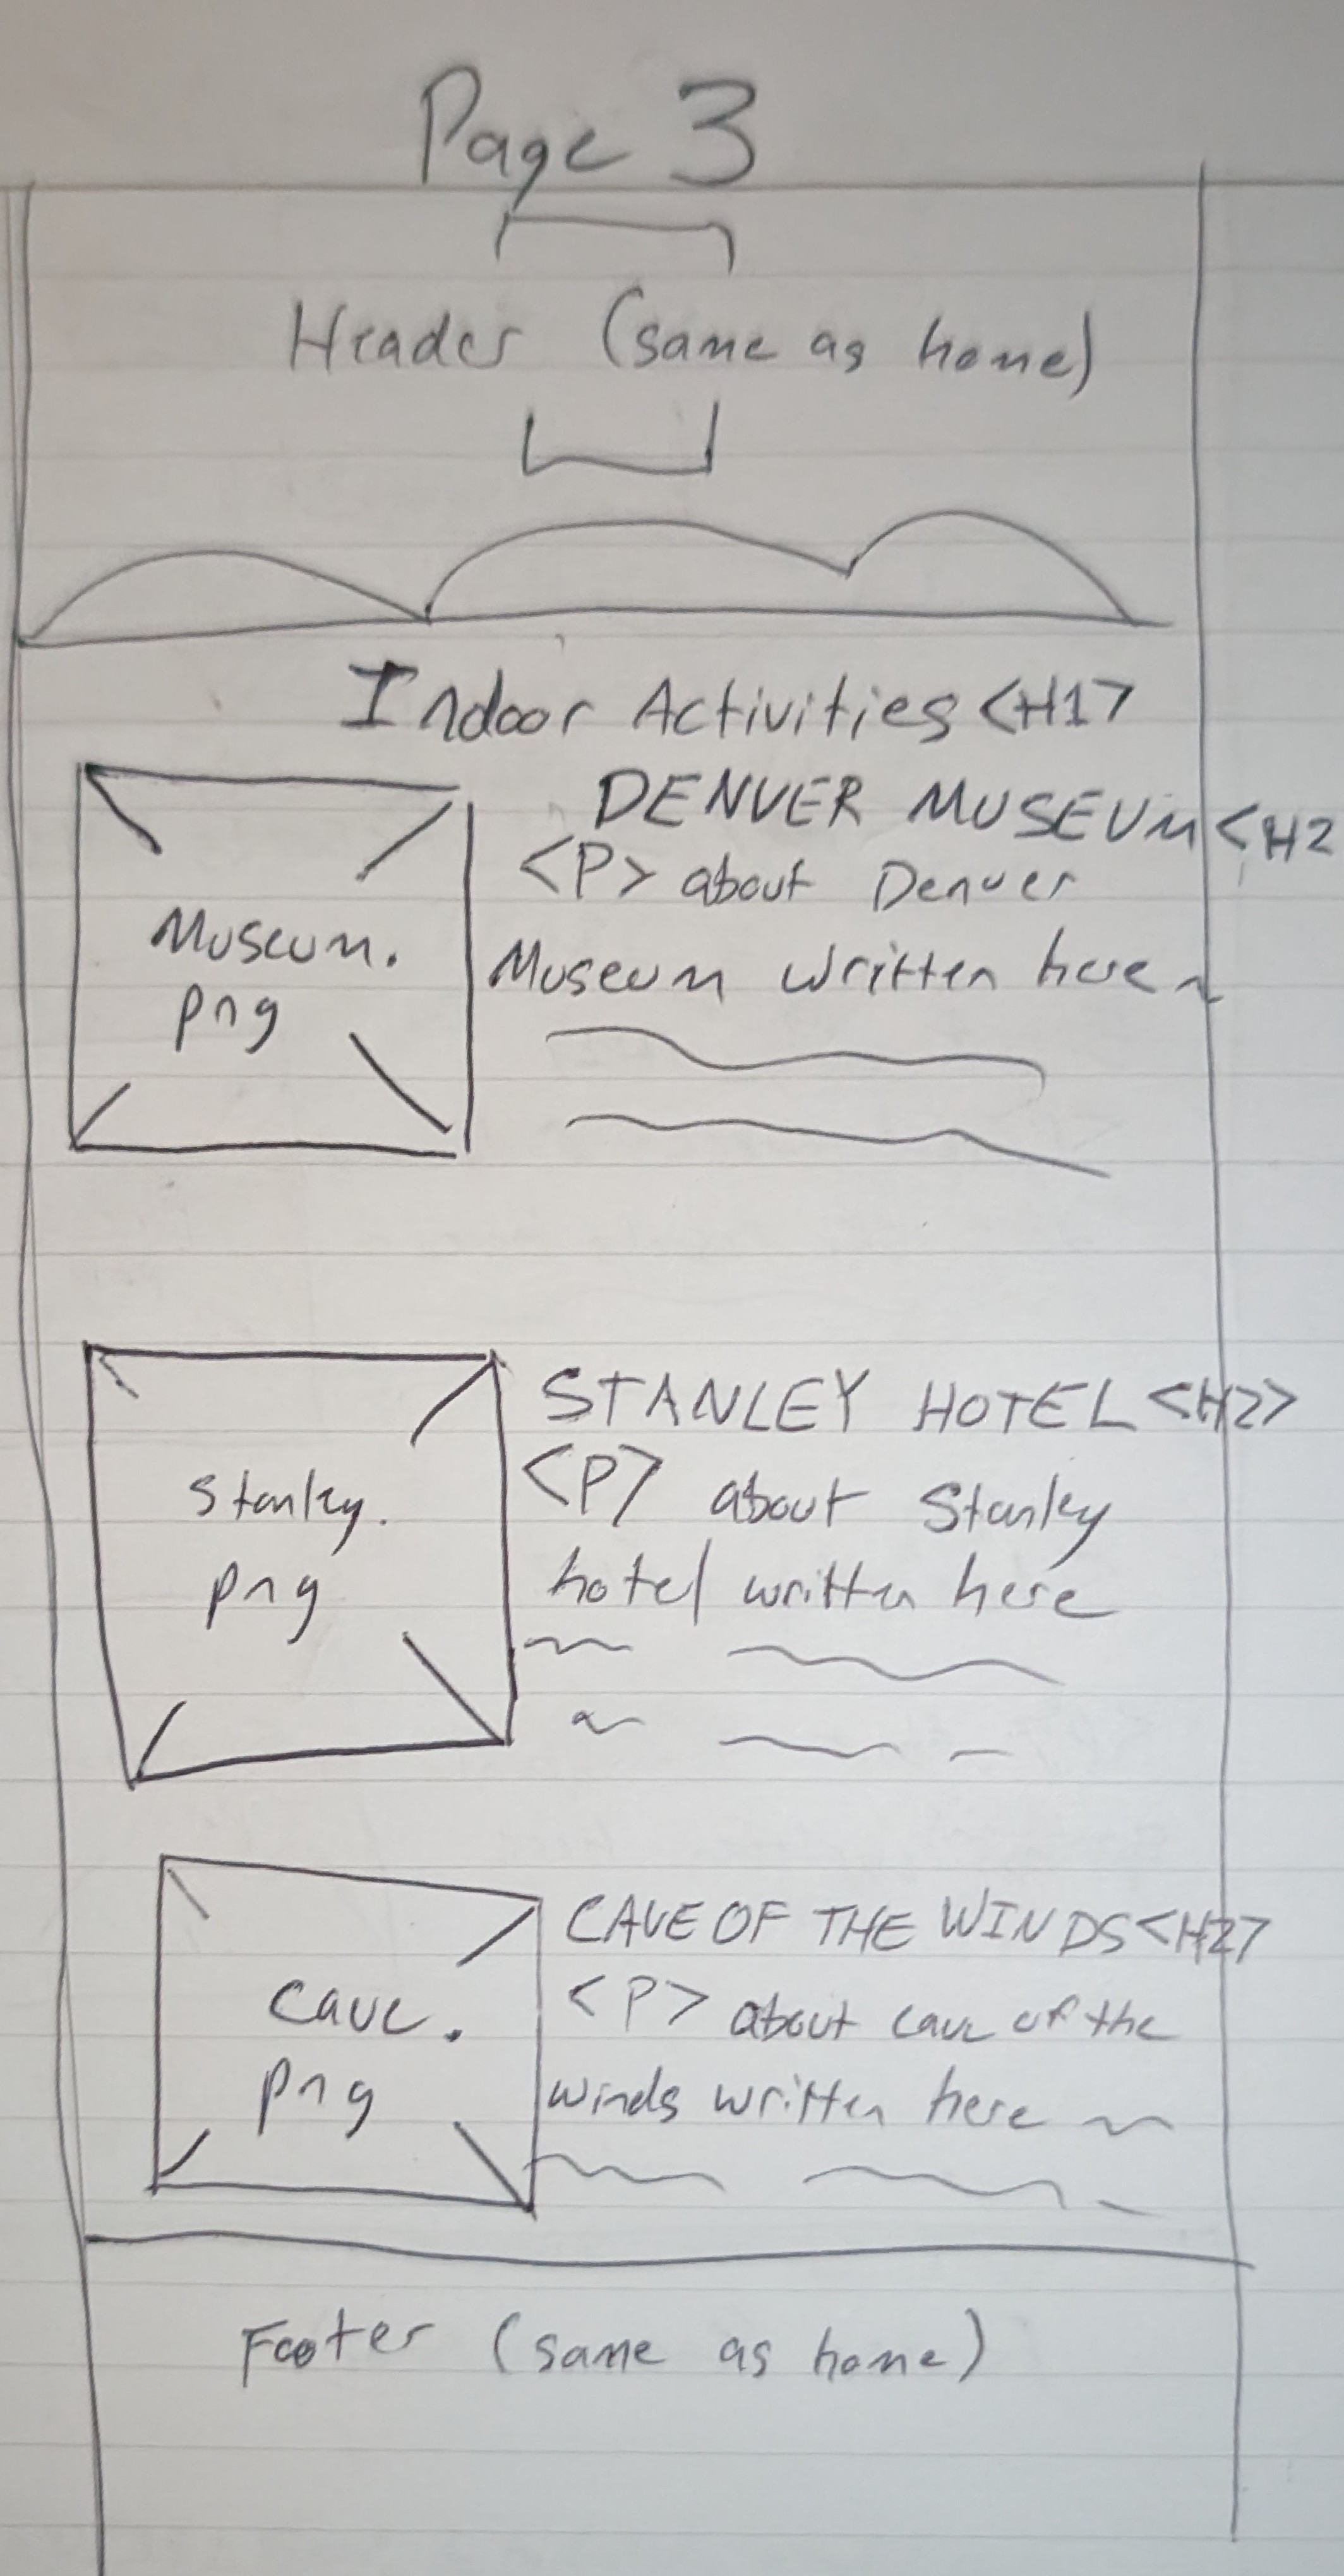 Page 3
Header (same as home)
Indoor Activities <H1>
DENVER MUSEUM <H2
<P> about Denver
Museum written here
Museum.
png
STANLEY HOTEL <H2>
<P> about Stanley
hotel written here
Stanley.
png
CAVE OF THE WINDS <H2>
<P> about cave of the
winds written here
Cave.
png
Footer (same as home)